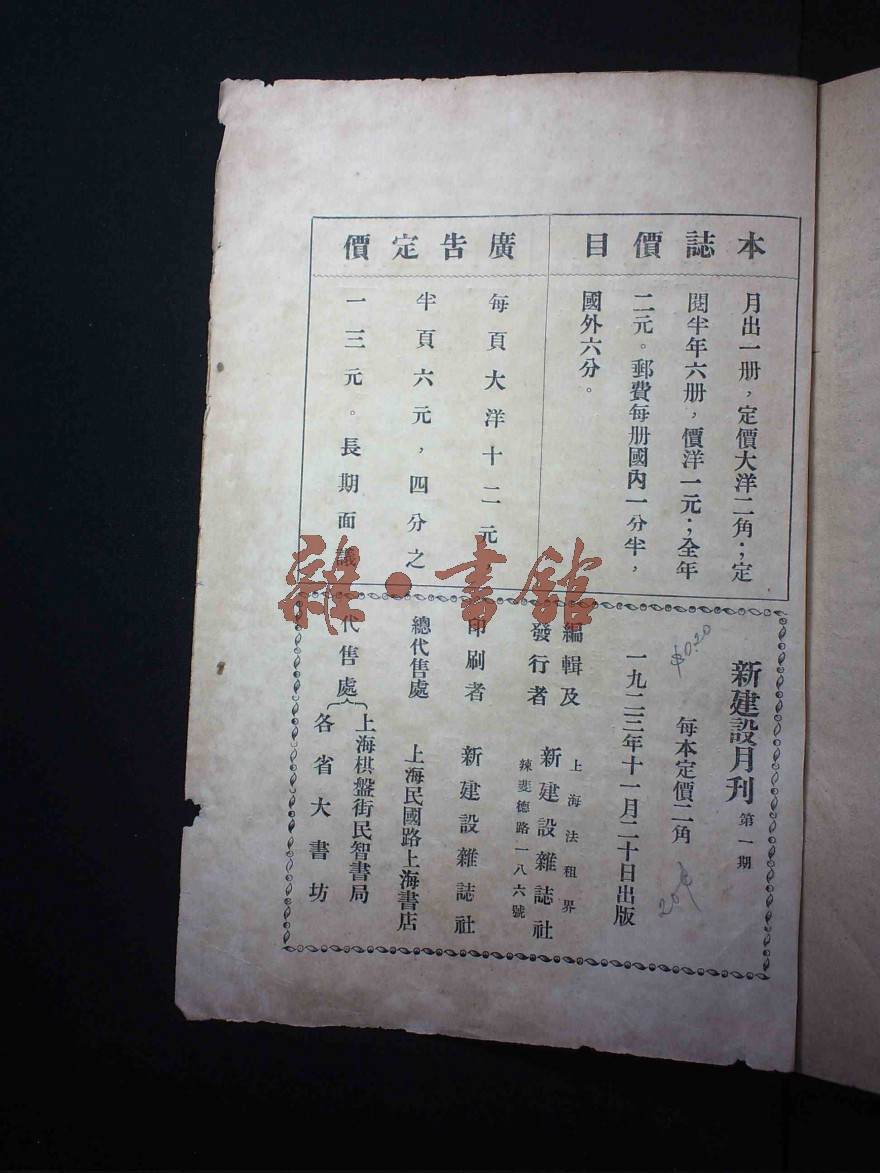 本誌價目
月出一册，定價大洋二角；定
閱半年六册，價洋一元；全年
二元。郵費每册國內一分半，
國外六分。
廣告定價
每頁大洋十二元，
半頁六元，四分之
一三元。長期面議
新建設月刊 第一期
每本定價二角
$0.20
一九二三年十一月二十日出版
編輯及
發行者
上海法租界
新建設雜誌社
辣斐德路一八六號
印刷者 新建設雜誌社
總代售處 上海民國路上海書店
代售處
上海棋盤街民智書局
各省大書坊
雜·書館